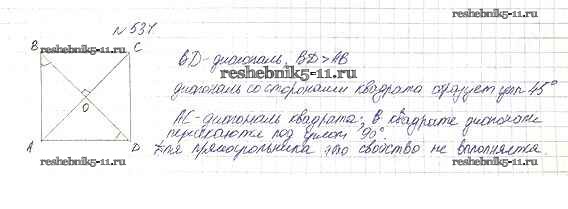 № 537
B
C
reshebnik5-11.ru
reshebnik5-11.ru
BD-диагональ, BD > AB
reshebnik5-11.ru
диагональ со сторонами квадрата образует угол 45°
O
AC-диагональ квадрата; в квадрате диагонали
пересекаются под углом 90°.
Для прямоугольника это свойство не выполняется.
A
D
reshebnik5-11.ru
reshebnik5-11.ru